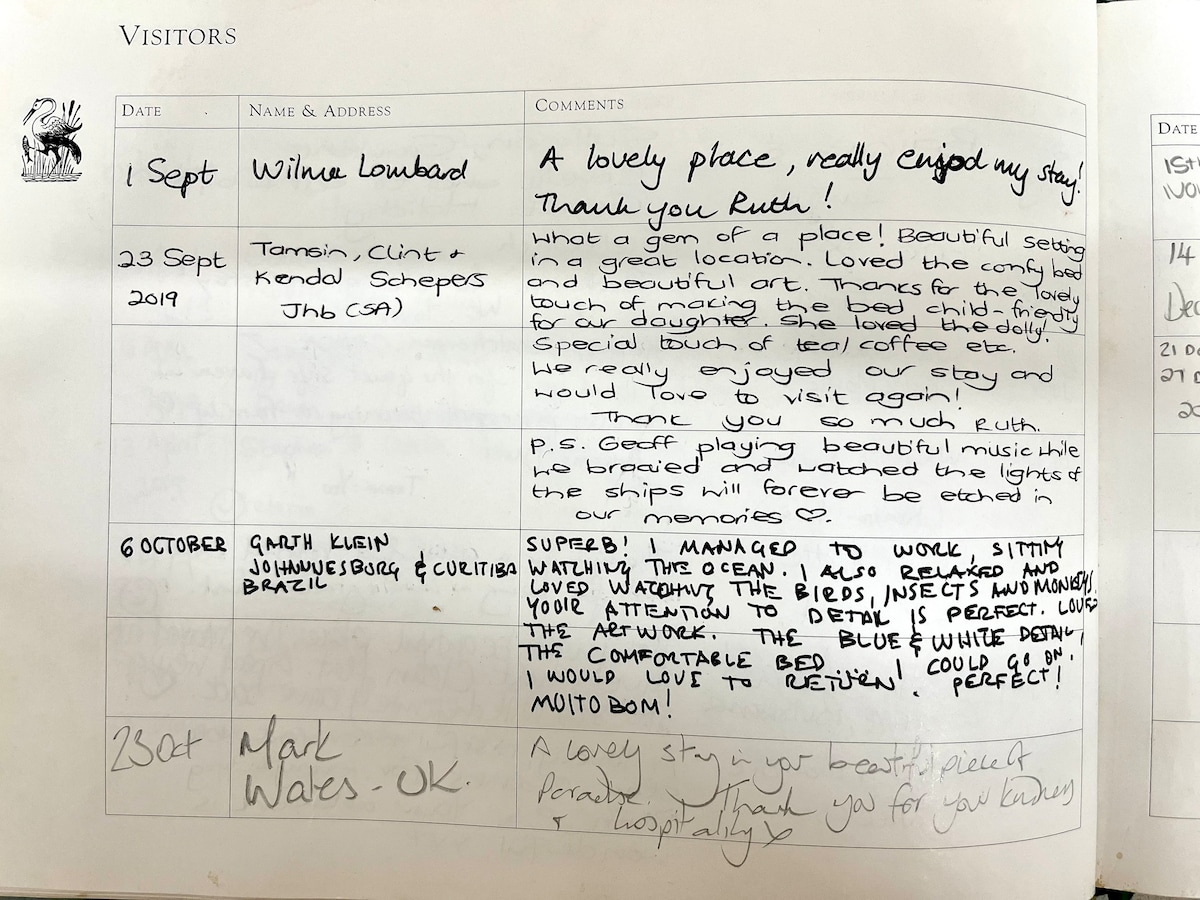 VISITORS
DATE NAME & ADDRESS COMMENTS
1 Sept Wilma Lombard A lovely place, really enjod my stay!
Thank you Ruth!
23 Sept
2019
Tamsin, Clint +
Kendal Schepers
Jhb (SA)
What a gem of a place! Beautiful setting
in a great location. Loved the comfy bed
and beautiful art. Thanks for the lovely
touch of making the bed child-friendly
for our daughter. She loved the dolly!
Special touch of tea/coffee etc.
We really enjoyed our stay and
would love to visit again!
Thank you so much Ruth.
P.S. Geoff playing beautiful music while
we braaied and watched the lights of
the ships will forever be etched in
our memories ♡.
6 OCTOBER
GARTH KLEIN
JOHANNESBURG & CURITIBA
BRAZIL
SUPERB! I MANAGED TO WORK, SITTING
WATCHING THE OCEAN. I ALSO RELAXED AND
LOVED WATCHING THE BIRDS, INSECTS AND MONKEYS.
YOUR ATTENTION TO DETAIL IS PERFECT. LOVED
THE ARTWORK. THE BLUE & WHITE DETAIL,
THE COMFORTABLE BED ..... I COULD GO ON.
I WOULD LOVE TO RETURN. PERFECT!
MUITO BOM!
23 Oct
Mark
Wales - UK.
A lovely stay in your beautiful piece of
Paradise. Thank you for your kindness
+ hospitality x
DATE
15th
NO
14
Dec
21 D
27 D
20